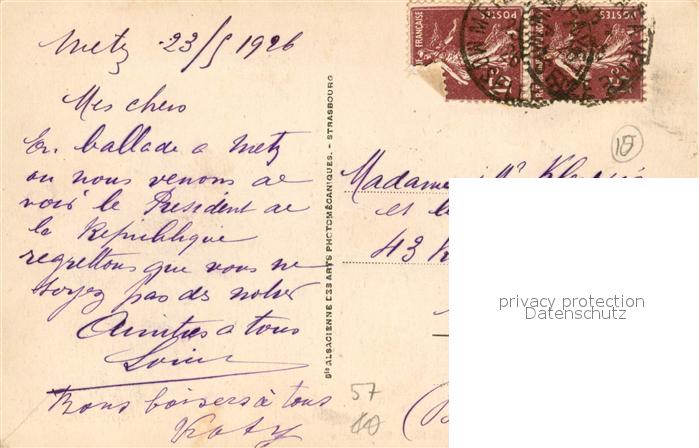 Metz 23/5 1926
Mes chers
En ballade a Metz
ou nous venons de
voir le President de
la Republique
regrettons que vous ne
soyez pas des notres
Amities a tous
Bons baisers à tous
Katy
Sté ALSACIENNE DES ARTS PHOTOMÉCANIQUES. - STRASBOURG
FRANÇAISE
POSTES
POSTES
10
Madame
et
43
privacy protection
Datenschutz
57